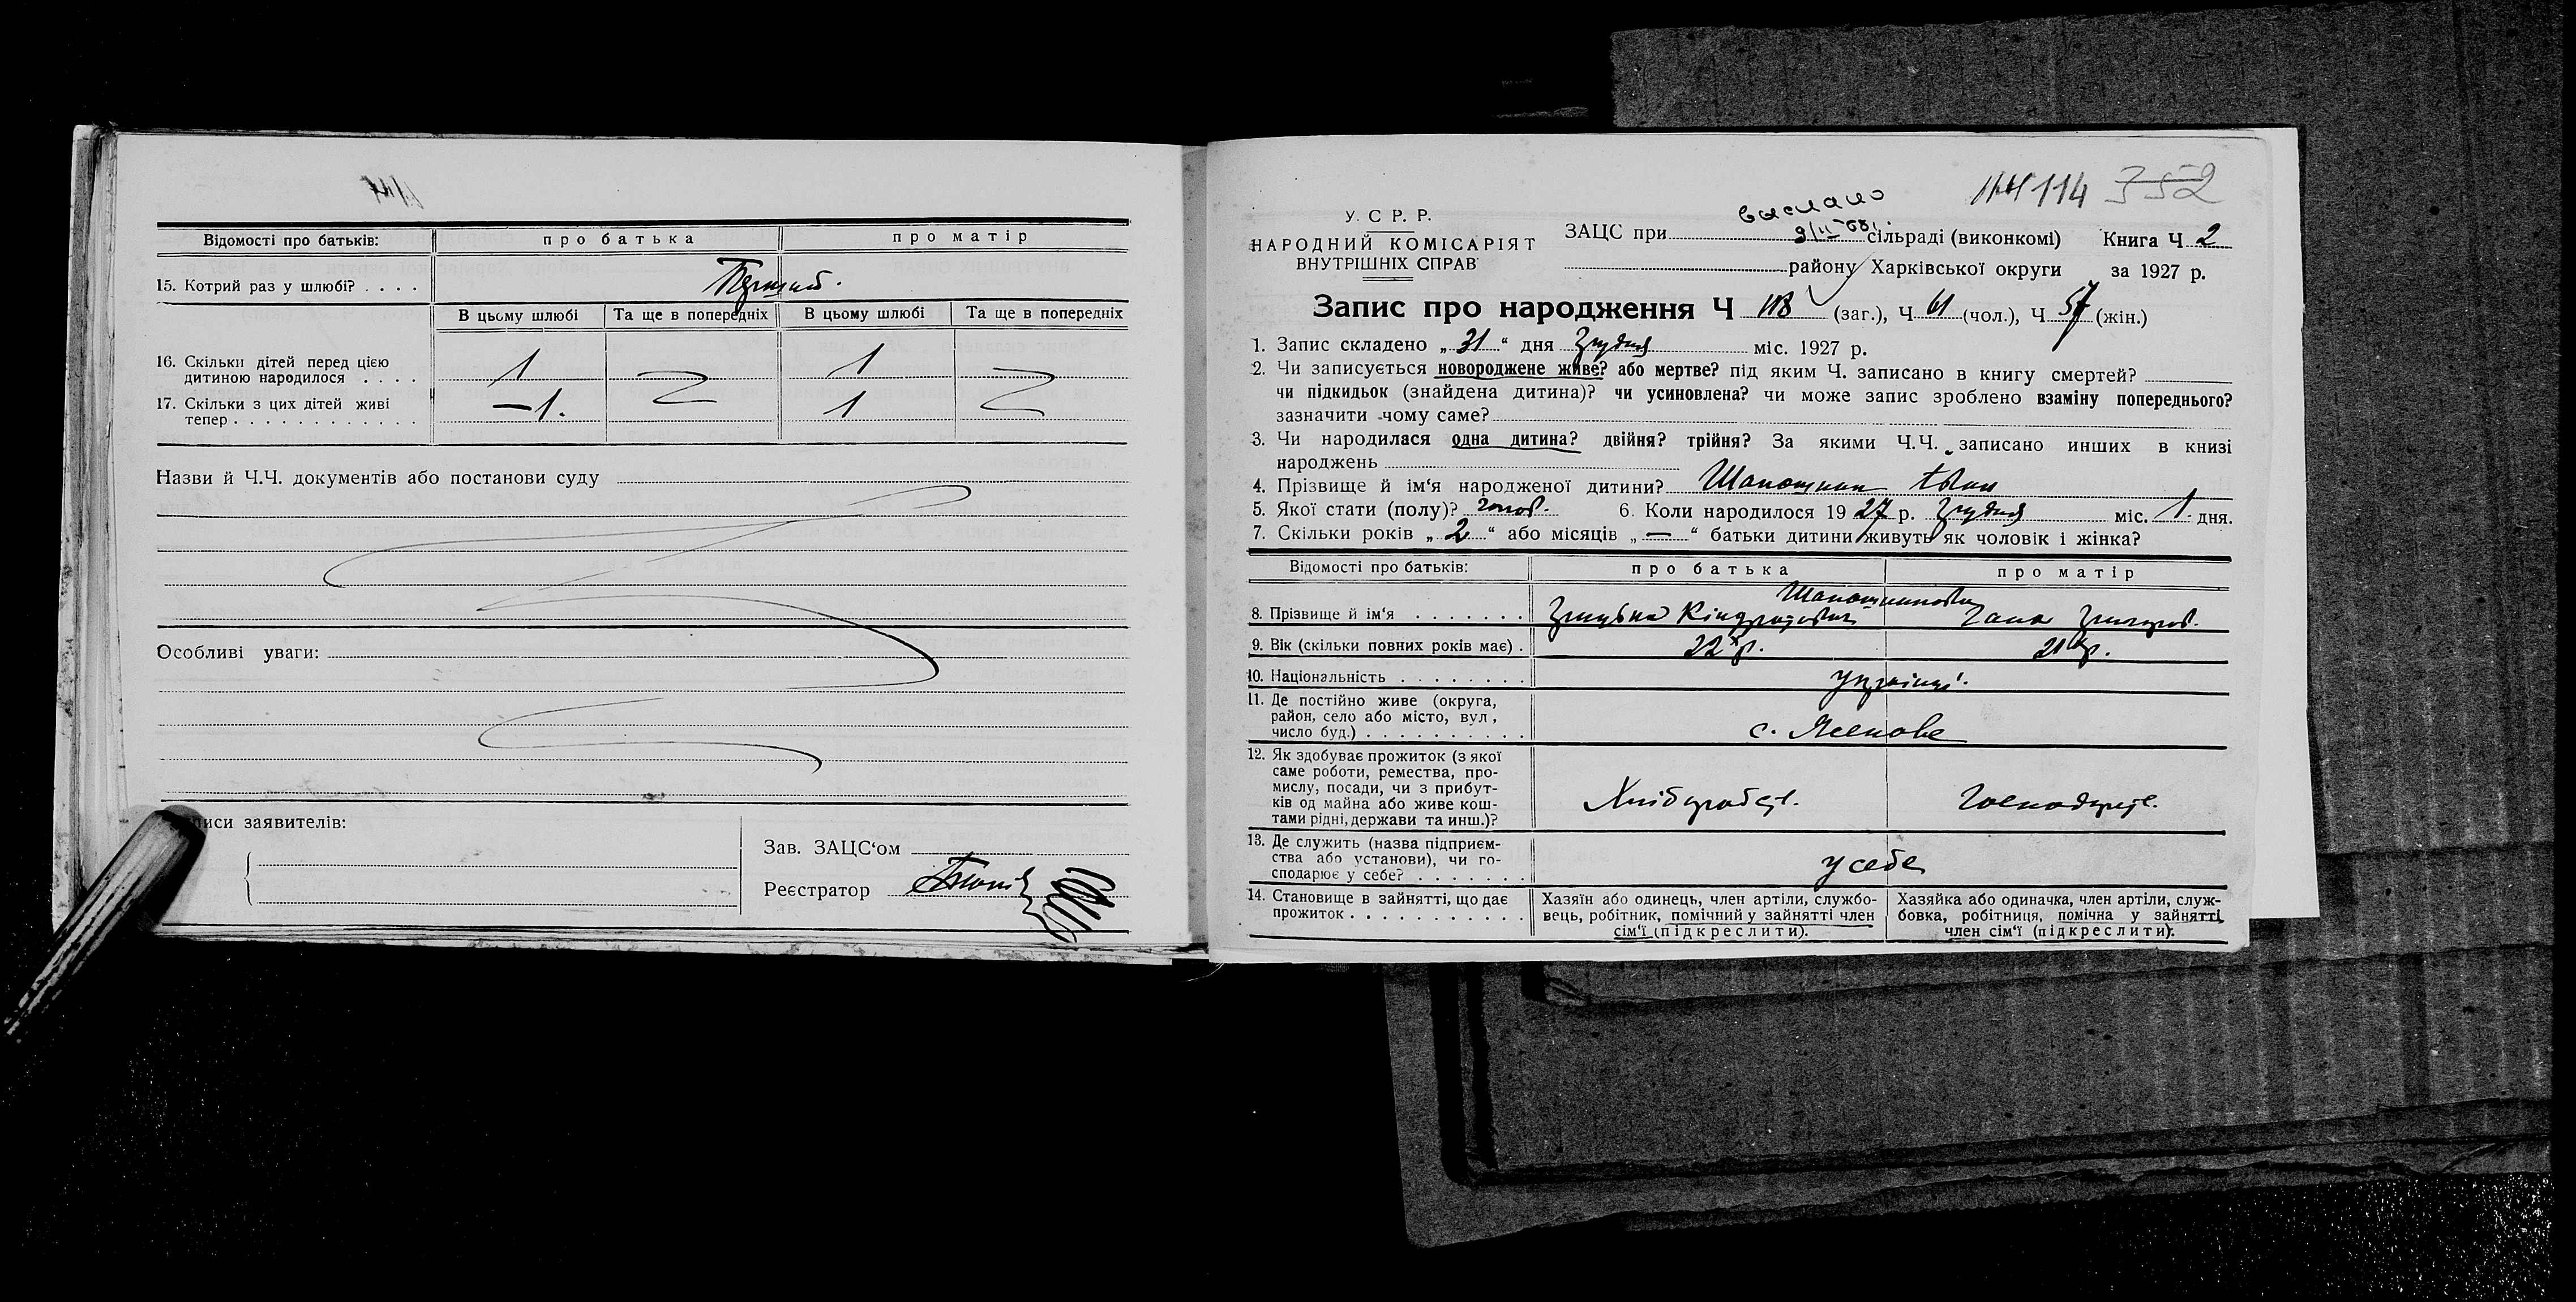 Відомості про батьків: про батька про матір
15. Котрий раз у шлюбі? . . . . Перший.
В цьому шлюбі Та ще в попередніх В цьому шлюбі Та ще в попередніх
16. Скільки дітей перед цією
дитиною народилося . . . . 1 1
17. Скільки з цих дітей живі
тепер . . . . . . . . . . . . . —1. 1
Назви й Ч.Ч. документів або постанови суду
Особливі уваги:
писи заявителів:
Зав. ЗАЦС‘ом
Реєстратор
114 352
У. С. Р. Р.
НАРОДНИЙ КОМІСАРІЯТ
ВНУТРІШНІХ СПРАВ
выслано
9/II-68
ЗАЦС при сільраді (виконкомі) Книга Ч 2
району Харківської округи за 1927 р.
Запис про народження Ч 118 (заг.), Ч 61 (чол.), Ч 57 (жін.)
1. Запис складено „ 31 “ дня Грудня міс. 1927 р.
2. Чи записується новороджене живе? або мертве? під яким Ч. записано в книгу смертей?
чи підкидьок (знайдена дитина)? чи усиновлена? чи може запис зроблено взаміну попереднього?
зазначити чому саме?
3. Чи народилася одна дитина? двійня? трійня? За якими Ч.Ч. записано инших в книзі
народжень
4. Прізвище й ім‘я народженої дитини? Шапошник Іван
5. Якої стати (полу)? чолов. 6. Коли народилося 19 27 р. Грудня міс. 1 дня.
7. Скільки років „ 2 “ або місяців „ — “ батьки дитини живуть як чоловік і жінка?
Відомості про батьків: про батька про матір
Шапошникови
8. Прізвище й ім‘я . . . . . . . Грицько Кіндратович Гана Григоров.
9. Вік (скільки повних років має) . 22 р. 21 р.
10. Національність . . . . . . . . українці.
11. Де постійно живе (округа,
район, село або місто, вул,
число буд.) . . . . . . . . . . с. Ясенове
12. Як здобуває прожиток (з якої
саме роботи, ремества, про-
мислу, посади, чи з прибут-
ків од майна або живе кош-
тами рідні, держави та инш.)? Хліборобст. Господарст.
13. Де служить (назва підприєм-
ства або установи), чи го-
сподарює у себе? . . . . . . . у себе
14. Становище в зайнятті, що дає
прожиток . . . . . . . . . . . .
Хазяїн або одинець, член артіли, службо-
вець, робітник, помічний у зайнятті член
сім‘ї (підкреслити).
Хазяйка або одиначка, член артіли, служ-
бовка, робітниця, помічна у зайнятті
член сім‘ї (підкреслити).